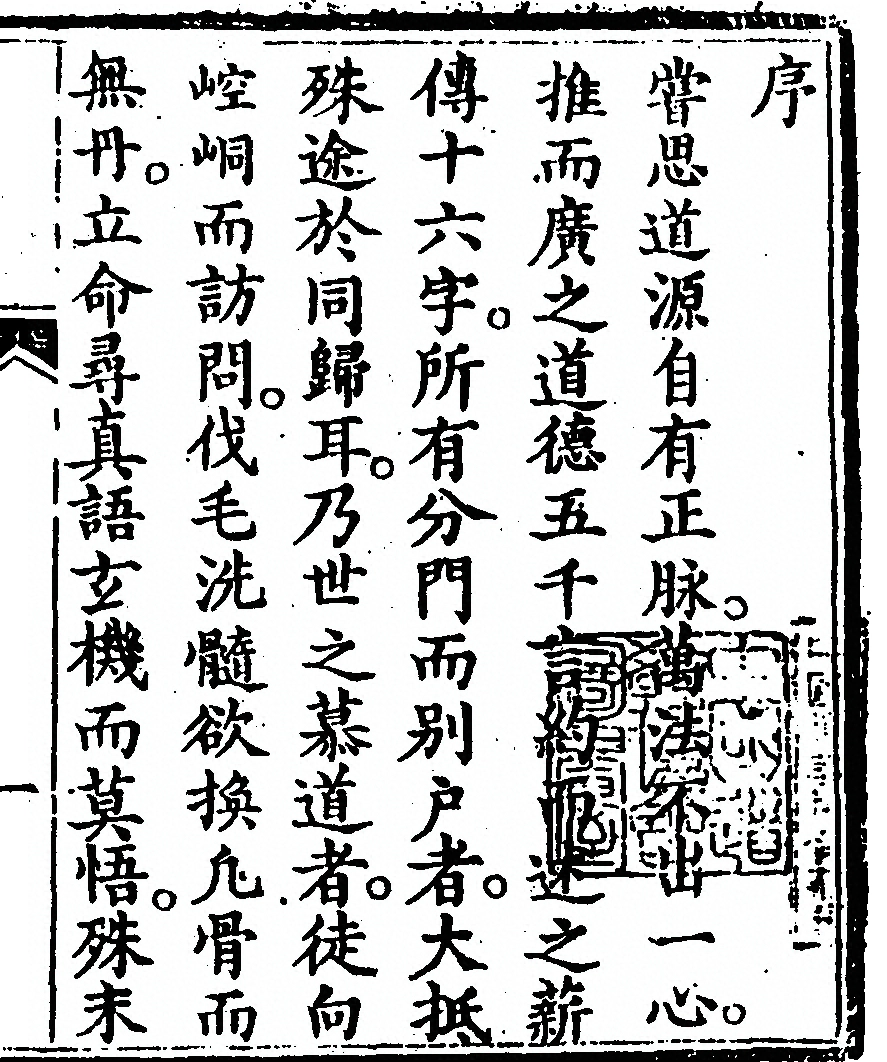 序
嘗思道源自有正脉。萬法不出一心。
推而廣之道德五千言約而述之薪
傳十六字。所有分門而别户者。大抵
殊途於同歸耳。乃世之慕道者。徒向
崆峒而訪問。伐毛洗髓欲换凡骨而
無丹。立命尋真語玄機而莫悟。殊未
一